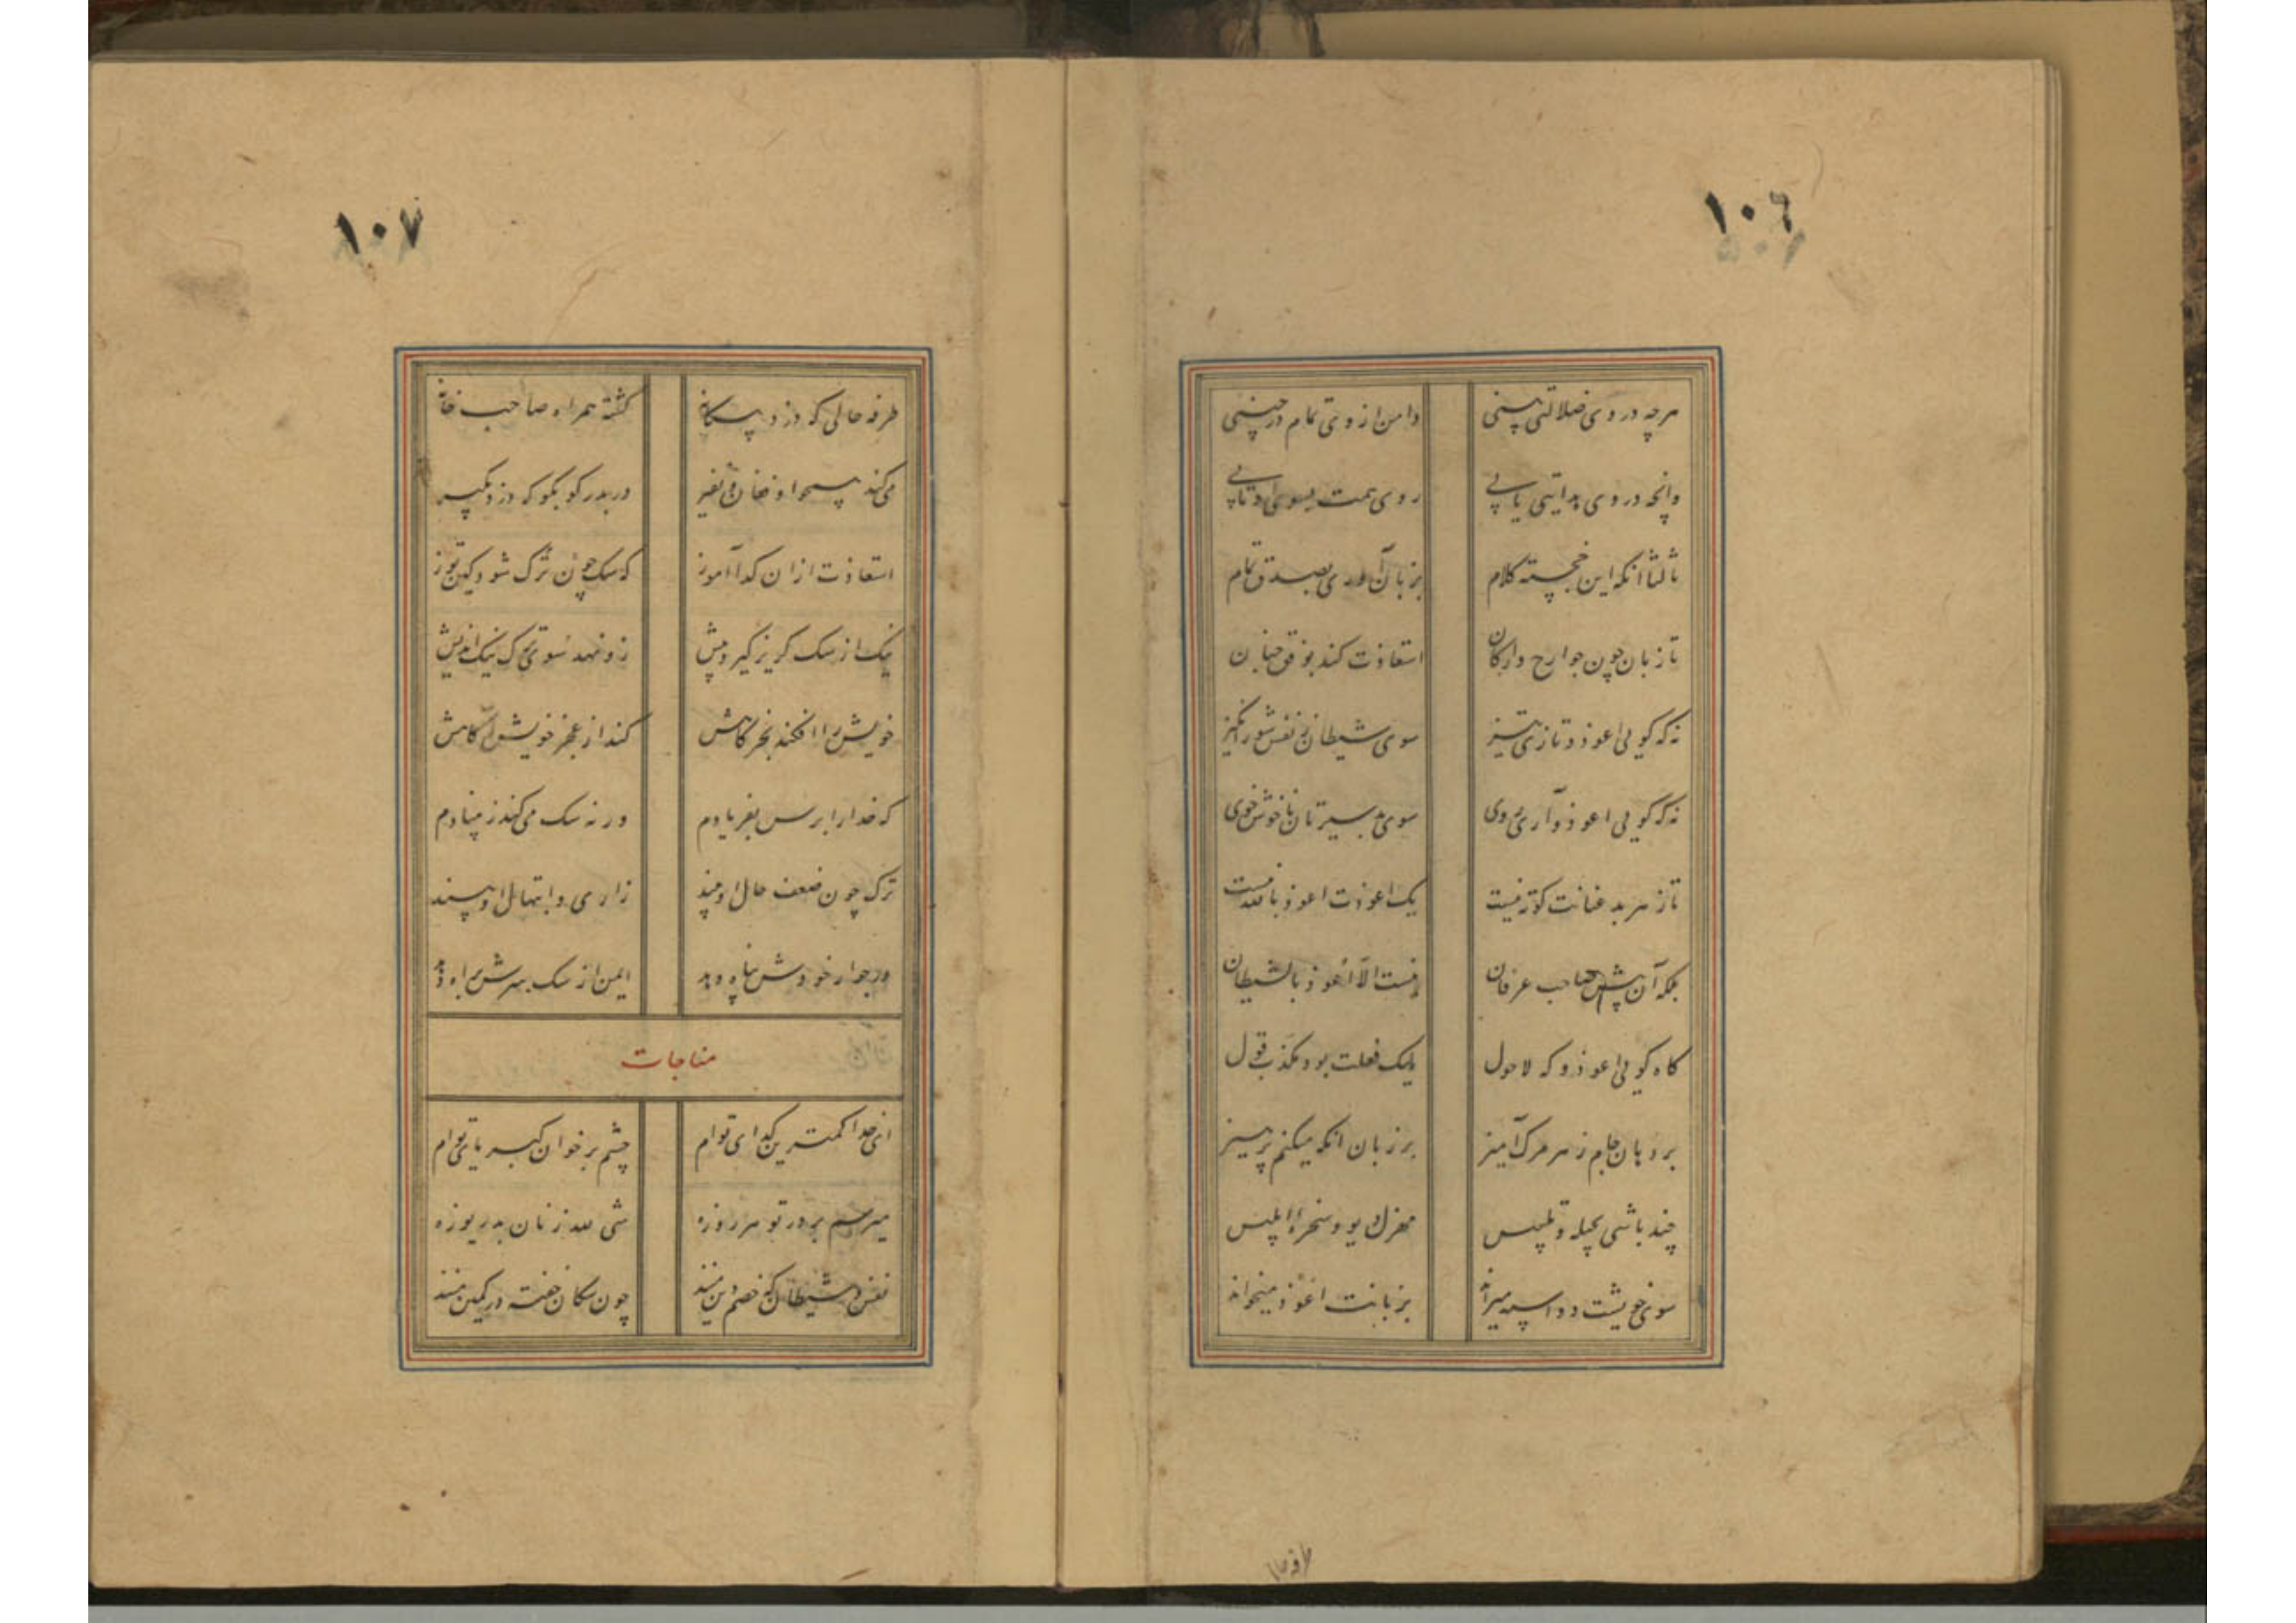 ١٠٦
هرچه در وی ضلالتی بینی دامن از وی تمام درچینی
وانچه در وی هدایتی یابی روی همت بسوی او تابی
ثالثا انکه این خجسته کلام بزبان آوری بصدق تمام
تا زبان چون جوارح و ارکان استعاذت کند بوفق جنان
نه که گویی اعوذ و تازی تیز سوی شیطان نفس شورانگیز
نه که گویی اعوذ و آری روی سوی بد سیرتان ناخوش خوی
تا ز هر بد عنانت کوته نیست یک اعوذت اعوذ بالله نیست
بلکه آن پیش صاحب عرفان نیست الا اعوذ بالشیطان
گاه گویی اعوذ و گه لاحول لیک فعلت بود مکذب قول
بر دهان جام زهر مرگ آمیز بر زبان انکه میکنم پرهیز
چند باشی بحیله و تلبیس مهزل دیو و سخره ابلیس
سوی خویشت دو اسبه میراند بزبانت اعوذ میخواند
١٠٧
طرفه حالی که دزد بیگانه گشته همراه صاحب خانه
می کند همچو او فغان و نفیر در بدر کو بکو که دزد بگیر
استعاذت ازان گدا آموز که سگ چون ترک شود کین توز
نیک از سگ گریز گیرد پیش رو نهد سوی ترک نیک اندیش
خویش را افکند بخرگاهش کند از عجز خویش آگاهش
که خدا را برس بفریادم ور نه سگ می کند ز بنیادم
ترک چون ضعف حال او بیند زاری و ابتهال او بیند
در جوار خودش پناه دهد ایمن از سگ سرش براه دهد
مناجات
ای خدا کمترین گدای توام چشم بر خوان کبریای توام
میرسم بر در تو هر روزه شی لله زنان بدریوزه
نفس و شیطان که خصم دین منند چون سگان خفته در کمین منند